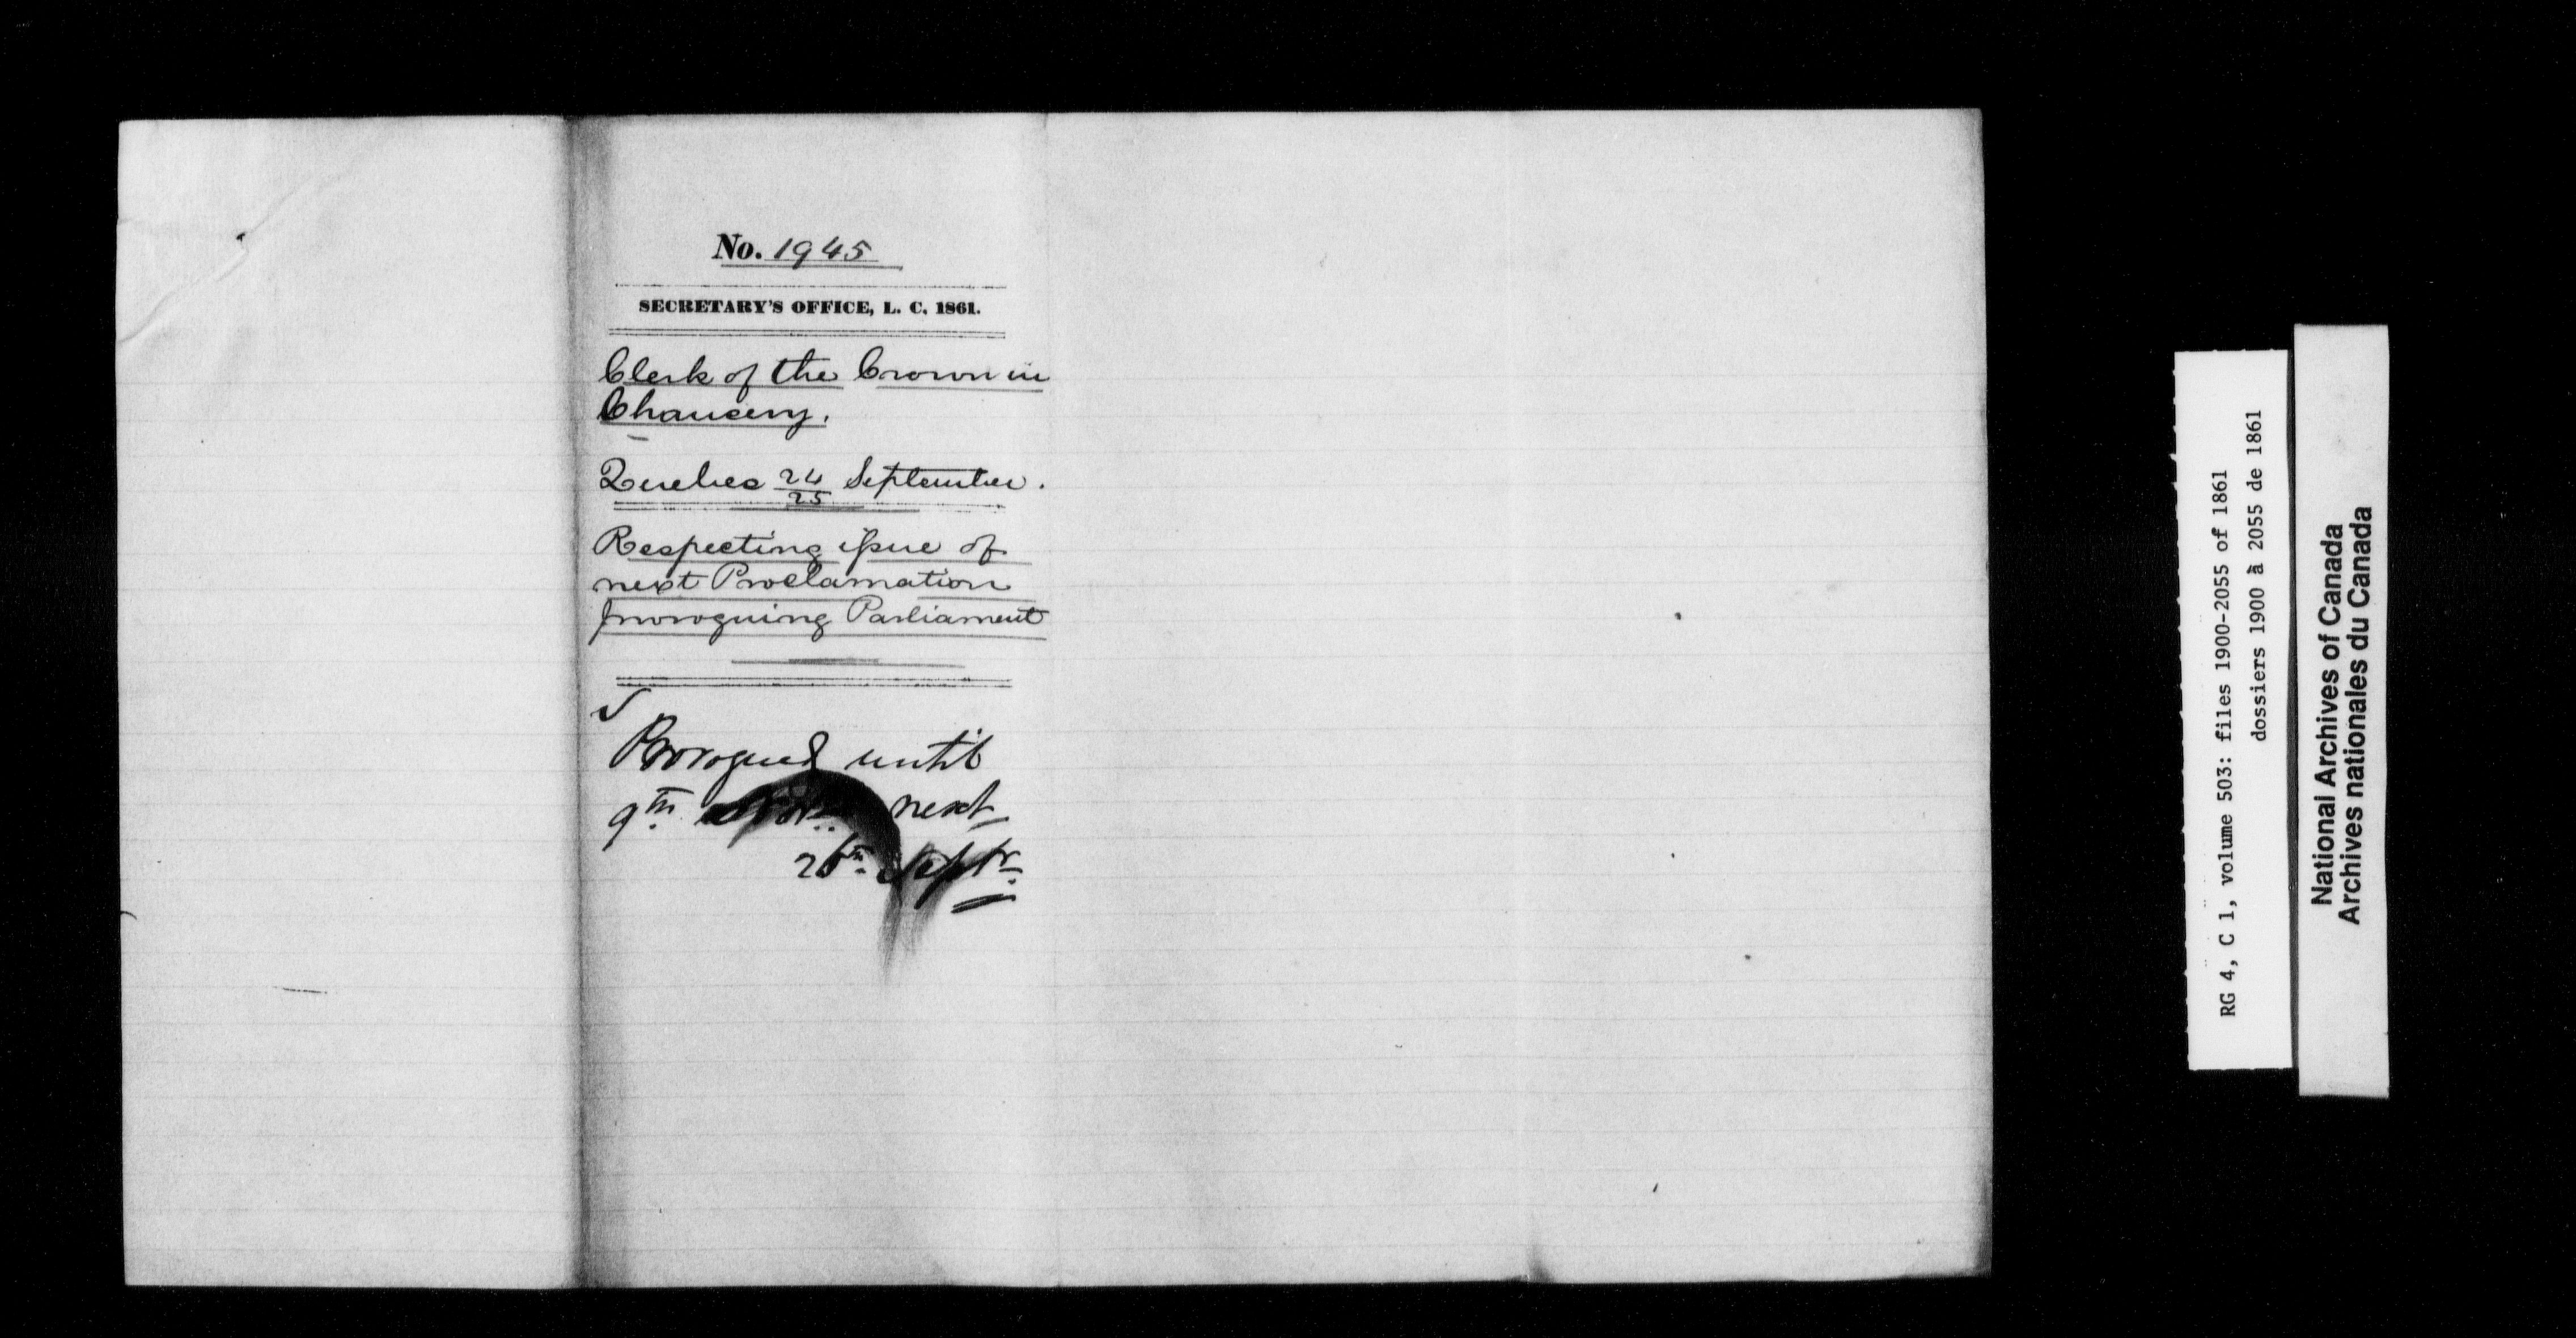 No. 1945
SECRETARY'S OFFICE, L. C. 1861.
Clerk of the Crown in
Chancery.
Quebec 24/25 September.
Respecting issue of
next Proclamation
proroguing Parliament
Prorogued until
9th Novr. next
26th Septr.
RG 4, C 1, volume 503: files 1900-2055 of 1861
dossiers 1900 à 2055 de 1861
National Archives of Canada
Archives nationales du Canada